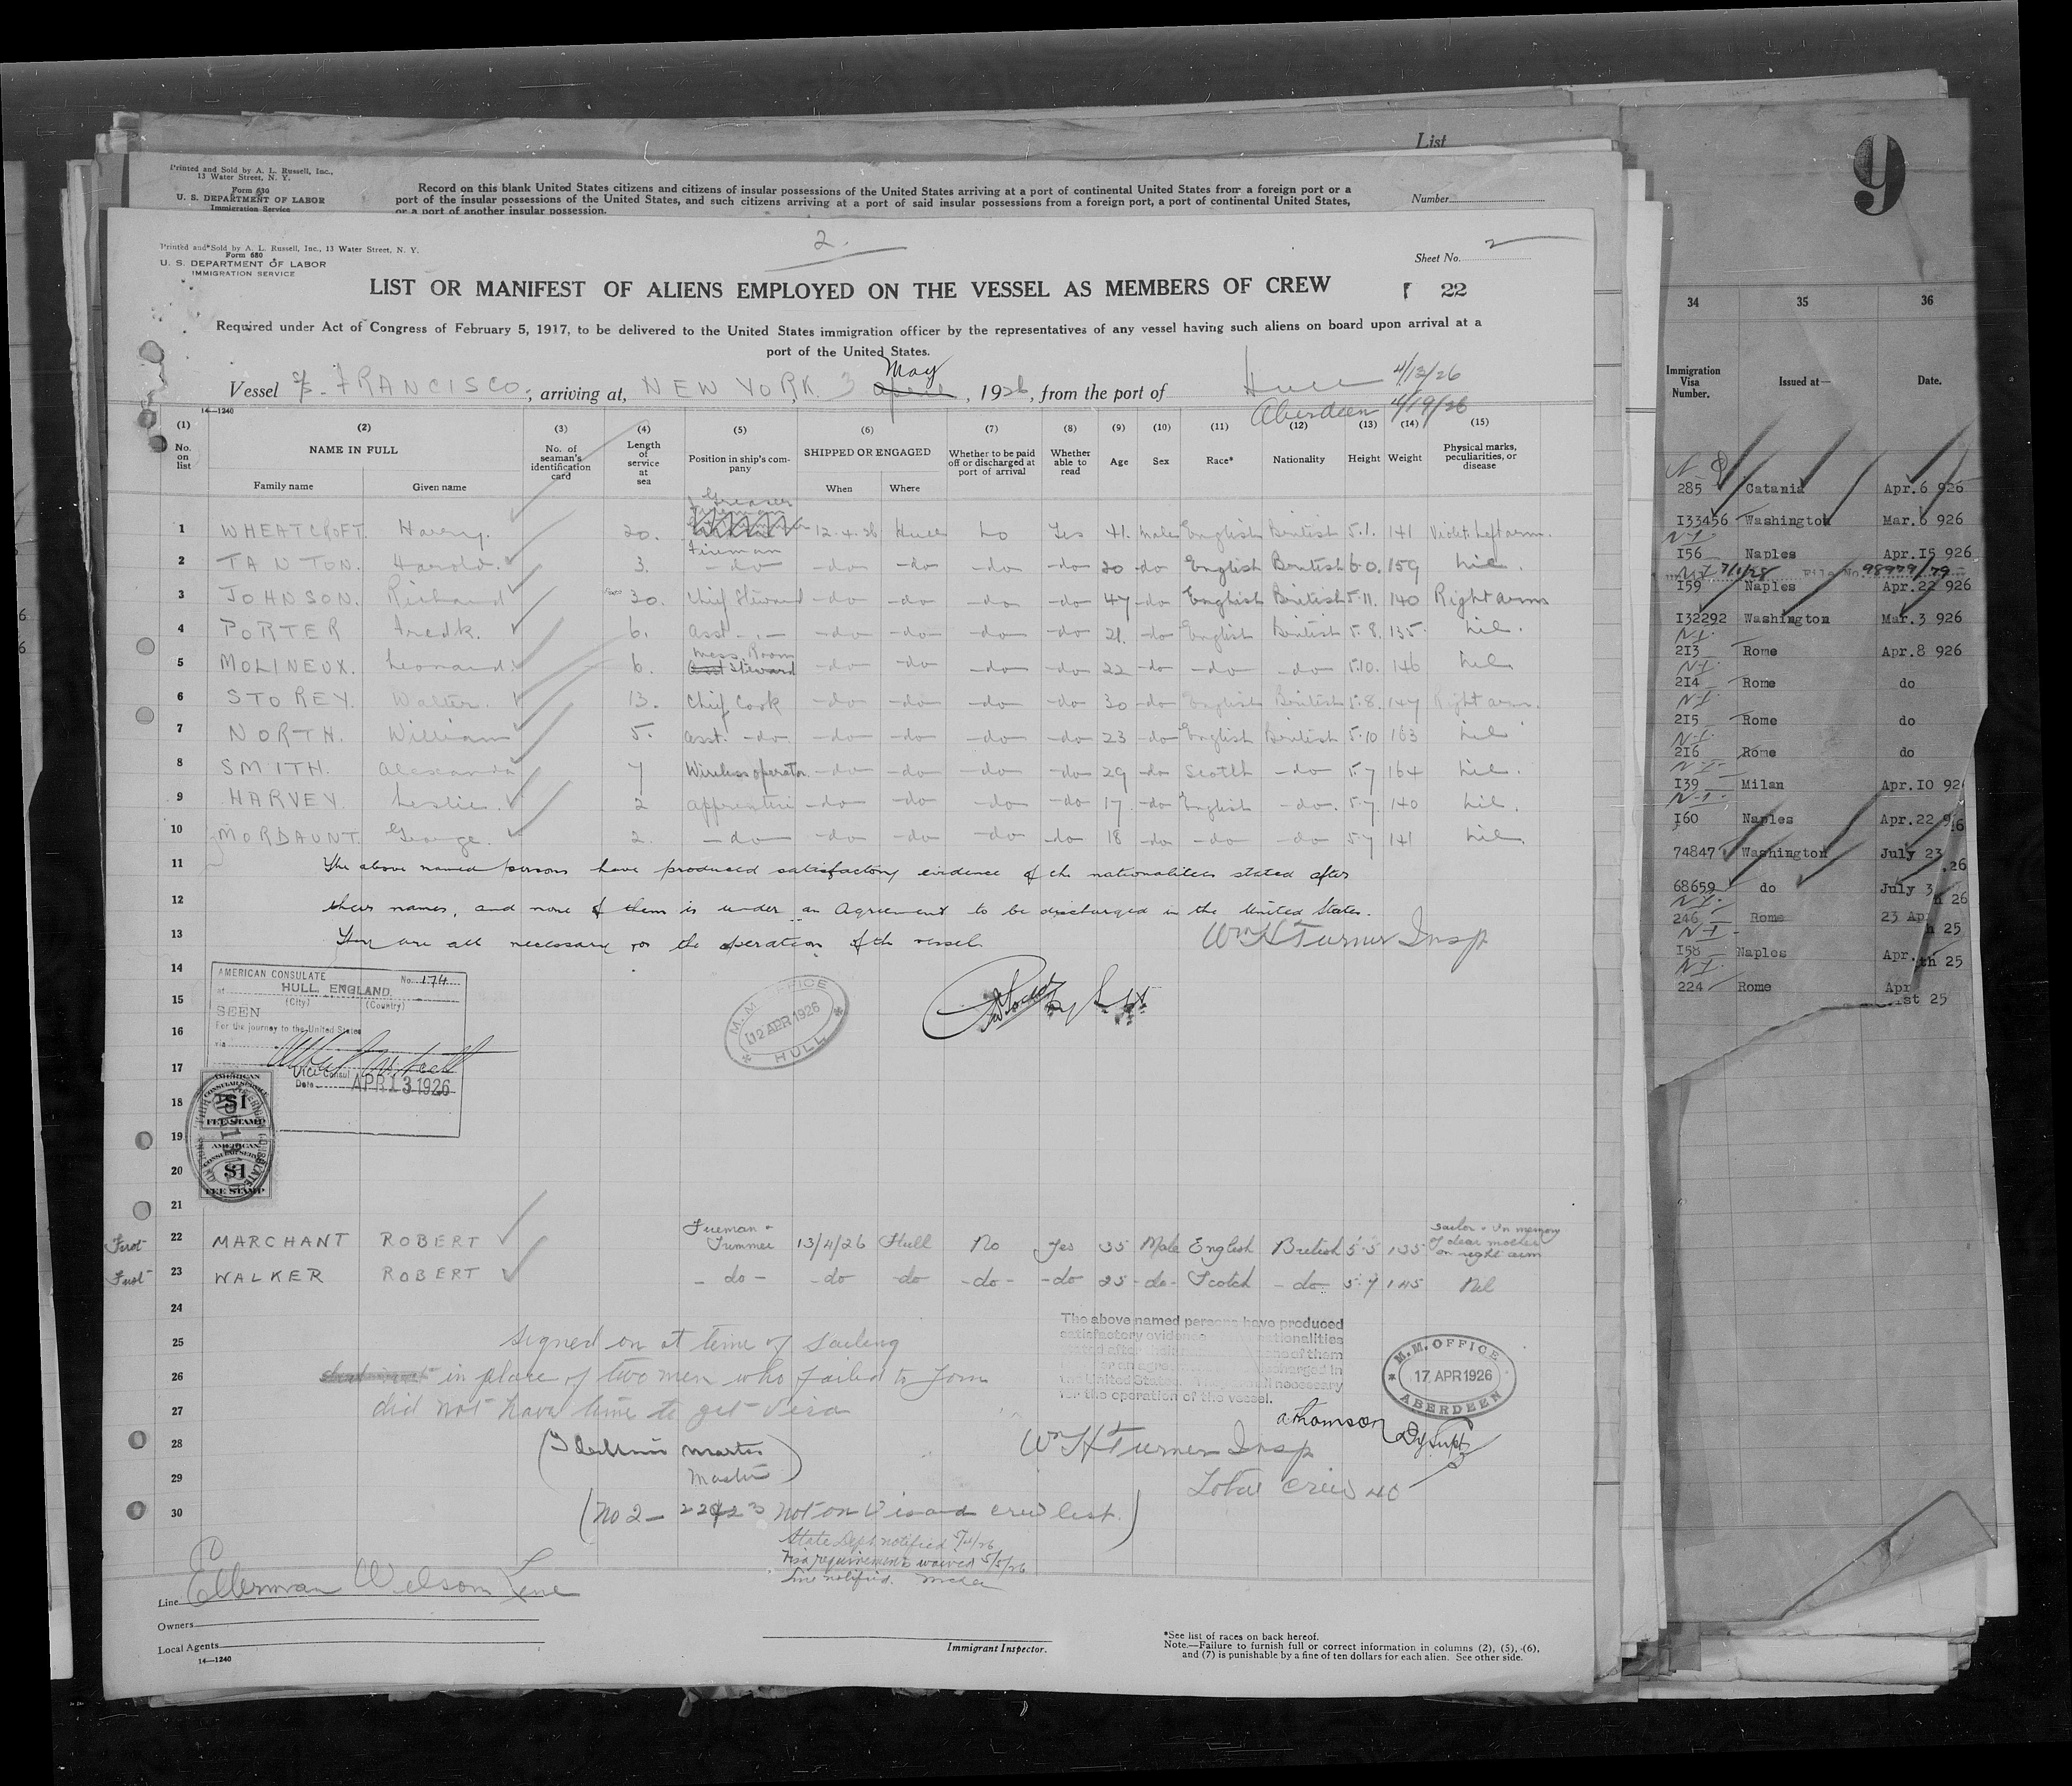 List
Printed and Sold by A. L. Russell, Inc.,
13 Water Street, N. Y.
Form 630
U. S. DEPARTMENT OF LABOR
Immigration Service
Record on this blank United States citizens and citizens of insular possessions of the United States arriving at a port of continental United States from a foreign port or a
port of the insular possessions of the United States, and such citizens arriving at a port of said insular possessions from a foreign port, a port of continental United States,
or a port of another insular possession.
Number
9
2.
Printed and Sold by A. L. Russell, Inc., 13 Water Street, N. Y.
Form 680
U. S. DEPARTMENT OF LABOR
IMMIGRATION SERVICE
Sheet No. 2
LIST OR MANIFEST OF ALIENS EMPLOYED ON THE VESSEL AS MEMBERS OF CREW 22
Required under Act of Congress of February 5, 1917, to be delivered to the United States immigration officer by the representatives of any vessel having such aliens on board upon arrival at a
port of the United States.
May
Vessel S/S. FRANCISCO; arriving at, NEW YORK 3 April, 1926, from the port of Hull 4/13/26
Aberdeen 4/19/26
14—1240
(1) (2) (3) (4) (5) (6) (7) (8) (9) (10) (11) (12) (13) (14) (15)
No. on list
NAME IN FULL
Family name
Given name
No. of seaman's identification card
Length of service at sea
Position in ship's company
SHIPPED OR ENGAGED
When
Where
Whether to be paid off or discharged at port of arrival
Whether able to read
Age
Sex
Race*
Nationality
Height
Weight
Physical marks, peculiarities, or disease
Greaser
1 WHEATCROFT. Harry. 20. 12.4.26 Hull No Yes 41. Male English British 5.1. 141 Violet. Left arm.
Fireman
2 TANTON. Harold. 3. -do- -do- -do- -do- -do 20 -do English British 6.0. 159 Nil.
3 JOHNSON. Richard 30. Chief Steward -do- -do- -do- -do 47 -do English British 5.11. 140 Right arm
4 PORTER Fredk. 6. Asst - " - -do- -do- -do- -do 21. -do English British 5.8. 135. Nil.
Mess Room
5 MOLINEUX. Leonard. 6. Asst Steward -do- -do -do- -do- 22 -do -do- -do- 5.10. 146 Nil
6 STOREY. Walter. 13. Chief Cook -do- -do- -do- -do 30 -do English British 5.8. 147 Right arm.
7 NORTH. William 5. Asst. -do- -do- -do- -do- -do 23 -do English British 5.10 163 Nil
8 SMITH. Alexander 7 Wireless operator -do- -do- -do- -do 29 -do Scotch -do- 5.7 164 Nil.
9 HARVEY. Leslie. 2 Apprentice -do- -do- -do- -do 17. -do English -do. 5.7. 140 Nil.
10 MORDAUNT. George. 2. -do- -do- -do- -do- do 18 -do -do- -do 5.7 141 Nil.
11 The above named persons have produced satisfactory evidence of the nationalities stated after
12 their names, and none of them is under an Agreement to be discharged in the United States.
13 They are all necessary for the operation of the vessel.
Wm H Turner Insp
14
15
16
17
18
19
20
21
AMERICAN CONSULATE No. 174
at HULL, ENGLAND.
(City) (Country)
SEEN
For the journey to the United States
via
Vice Consul
Date APR 13 1926
AMERICAN
CONSULAR SERVICE
$1
FEE STAMP
AMERICAN
CONSULAR SERVICE
$1
FEE STAMP
M. M. OFFICE
12 APR 1926
HULL
First 22 MARCHANT ROBERT Fireman & Trimmer 13/4/26 Hull No Yes 35 Male English British 5'5 135 Sailor & In memory of dear mother on right arm
First 23 WALKER ROBERT -do- -do -do -do- -do 25 -do- Scotch -do- 5.7 145 Nil
24
25 Signed on at time of sailing
26 in place of two men who failed to join
27 did not have time to get visa
28
29 Master
30 (No 2 — 22 & 23 not on Visaed crew list.)
The above named persons have produced
satisfactory evidence nationalities
stated after their of them
discharged in
the United States necessary
for the operation of the vessel.
M. M. OFFICE
17 APR 1926
ABERDEEN
A Thomson
Dy Supt
Wm H Turner Insp
Total crew 40
State Dept notified 5/4/26
Visa requirements waived 5/5/26
Line notified.
Line Ellerman Wilson Line
Owners
Local Agents
14—1240
Immigrant Inspector.
*See list of races on back hereof.
Note.—Failure to furnish full or correct information in columns (2), (5), (6),
and (7) is punishable by a fine of ten dollars for each alien. See other side.
34 35 36
Immigration Visa Number. Issued at— Date.
285 Catania Apr.6 926
I33456 Washington Mar.6 926
N-I.
I56 Naples Apr.I5 926
7/1/28 File No. 98979/79
I59 Naples Apr.22 926
I32292 Washington Mar.3 926
N-I.
213 Rome Apr.8 926
N-I.
214 Rome do
N-I.
215 Rome do
N-I.
216 Rome do
N-I.
I39 Milan Apr.I0 92
N-I.
I60 Naples Apr.22 926
74847 Washington July 23
26
68659 do July 3
26
N-I.
246 Rome 23 Ap
25
N-I
I58 Naples Apr. th 25
N-I.
224 Rome Apr
1st 25